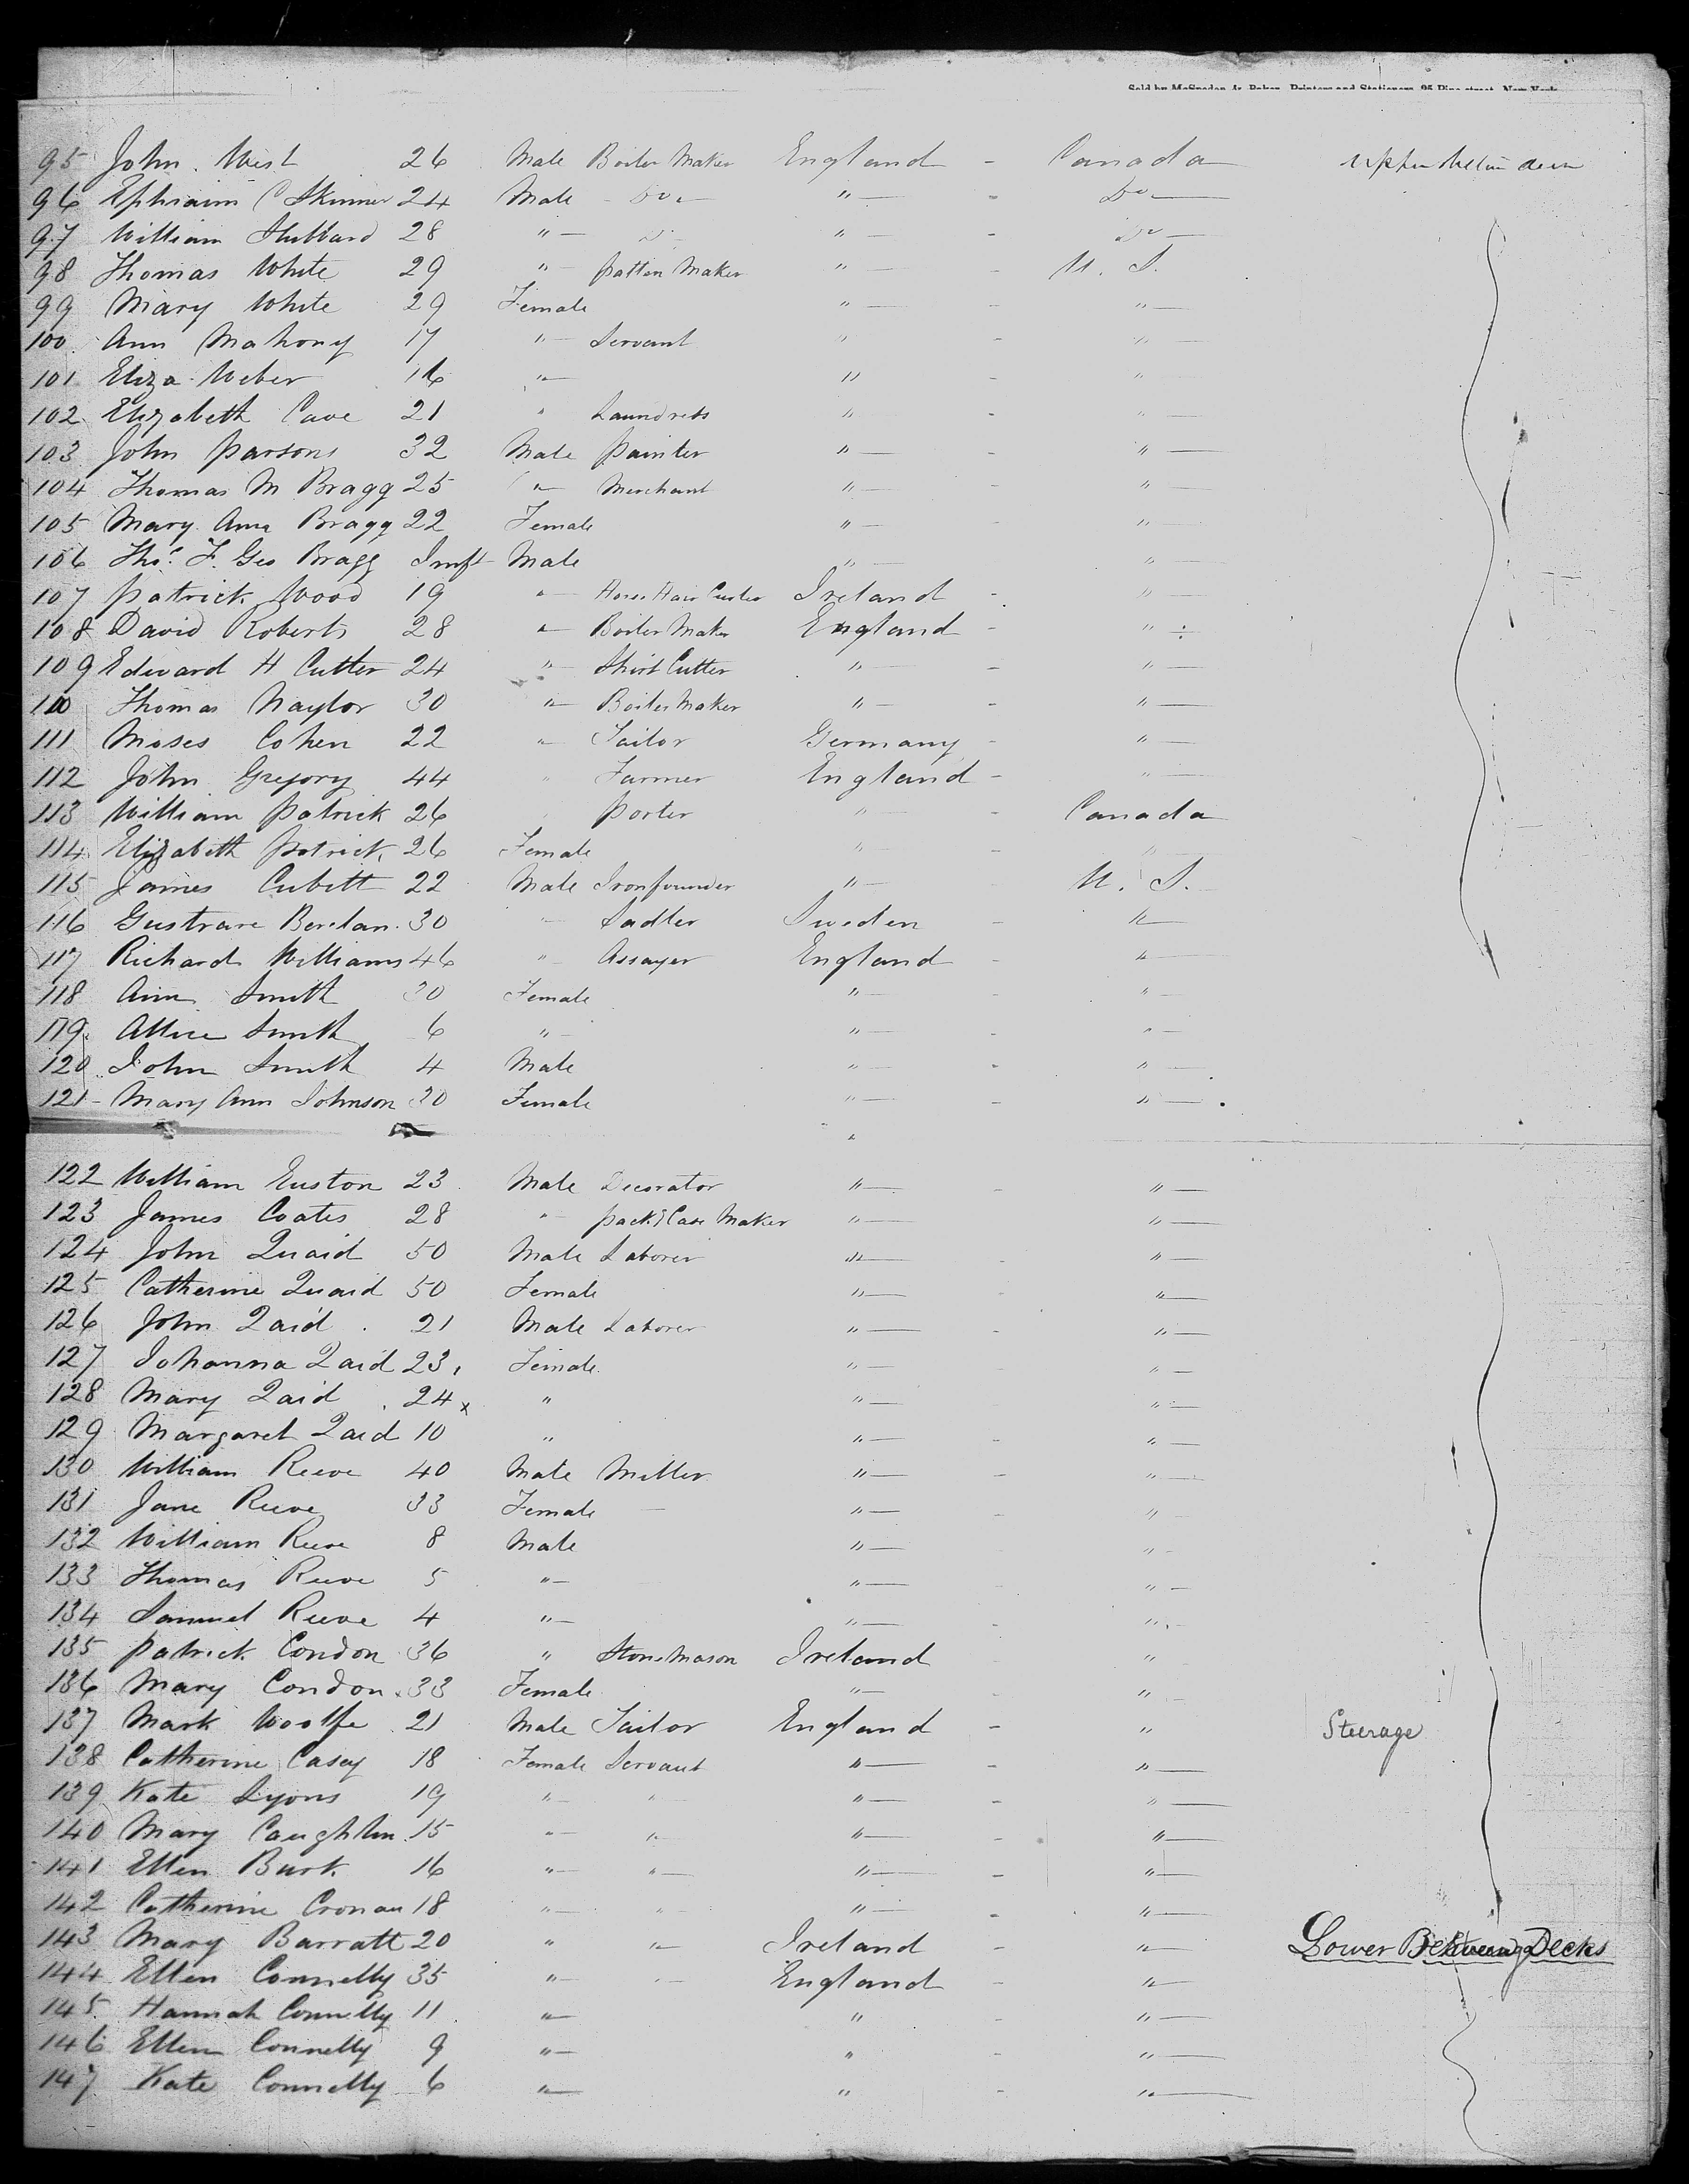 Sold by McSpedon & Baker, Printers and Stationers, 25 Pine street, New York
95 John West 26 Male Boiler Maker England - Canada Upper Between decks
96 Ephraim C Skinner 24 Male - Do - " - Do
97 William Stubbard 28 " Do " - Do
98 Thomas White 29 " patten Maker " - U. S.
99 Mary White 29 Female " - "
100 Ann Mahony 17 " Servant " - "
101 Eliza Weber 16 " " - "
102 Elizabeth Cave 21 " Laundress " - "
103 John parsons 32 Male painter " - "
104 Thomas M Bragg 25 " Merchant " - "
105 Mary Ann Bragg 22 Female " - "
106 Thos. F. Geo Bragg Inft Male " - "
107 patrick Wood 19 " Horse Hair Curler Ireland - "
108 David Roberts 28 " Boiler Maker England - "
109 Edward H Cutter 24 " Shirt Cutter " - "
110 Thomas Naylor 30 " Boiler Maker " - "
111 Moses Cohen 22 " Tailor Germany - "
112 John Gregory 44 " Farmer England - "
113 William patrick 26 " porter " - Canada
114 Elizabeth patrick 26 Female " - "
115 James Cubitt 22 Male Ironfounder " - U. S.
116 Gustrave 30 " Sadler Sweden - "
117 Richard Williams 46 " Assayer England - "
118 Ann Smith 30 Female " - "
119 Allice Smith 6 " " - "
120 John Smith 4 Male " - "
121 Mary Ann Johnson 30 Female " - "
122 William Euston 23 Male Decorator " - "
123 James Coates 28 " packg Case Maker " "
124 John Quaid 50 Male Laborer " - "
125 Catherine Quaid 50 Female " "
126 John Qaid 21 Male Laborer " - "
127 Johanna Qaid 23 Female " - "
128 Mary Qaid 24 x " " "
129 Margaret Qaid 10 " " - "
130 William Reeve 40 Male Miller " - "
131 Jane Reeve 33 Female " - "
132 William Reeve 8 Male " "
133 Thomas Reeve 5 " " "
134 Samuel Reeve 4 " " "
135 patrick Condon 36 " Stone Mason Ireland "
136 Mary Condon 33 Female " - "
137 Mark Woolfe 21 Male Tailor England - " Steerage
138 Catherine Casey 18 Female Servant " - "
139 Kate Lyons 19 " " " - "
140 Mary Caughlin 15 " " " - "
141 Ellen Burk 16 " " " - "
142 Catherine Cronan 18 " " " - "
143 Mary Barratt 20 " " Ireland - " Lower Between Decks
144 Ellen Connelly 35 " " England - "
145 Hannah Connelly 11 " " - "
146 Ellen Connelly 9 " " - "
147 Kate Connelly 6 " " - "